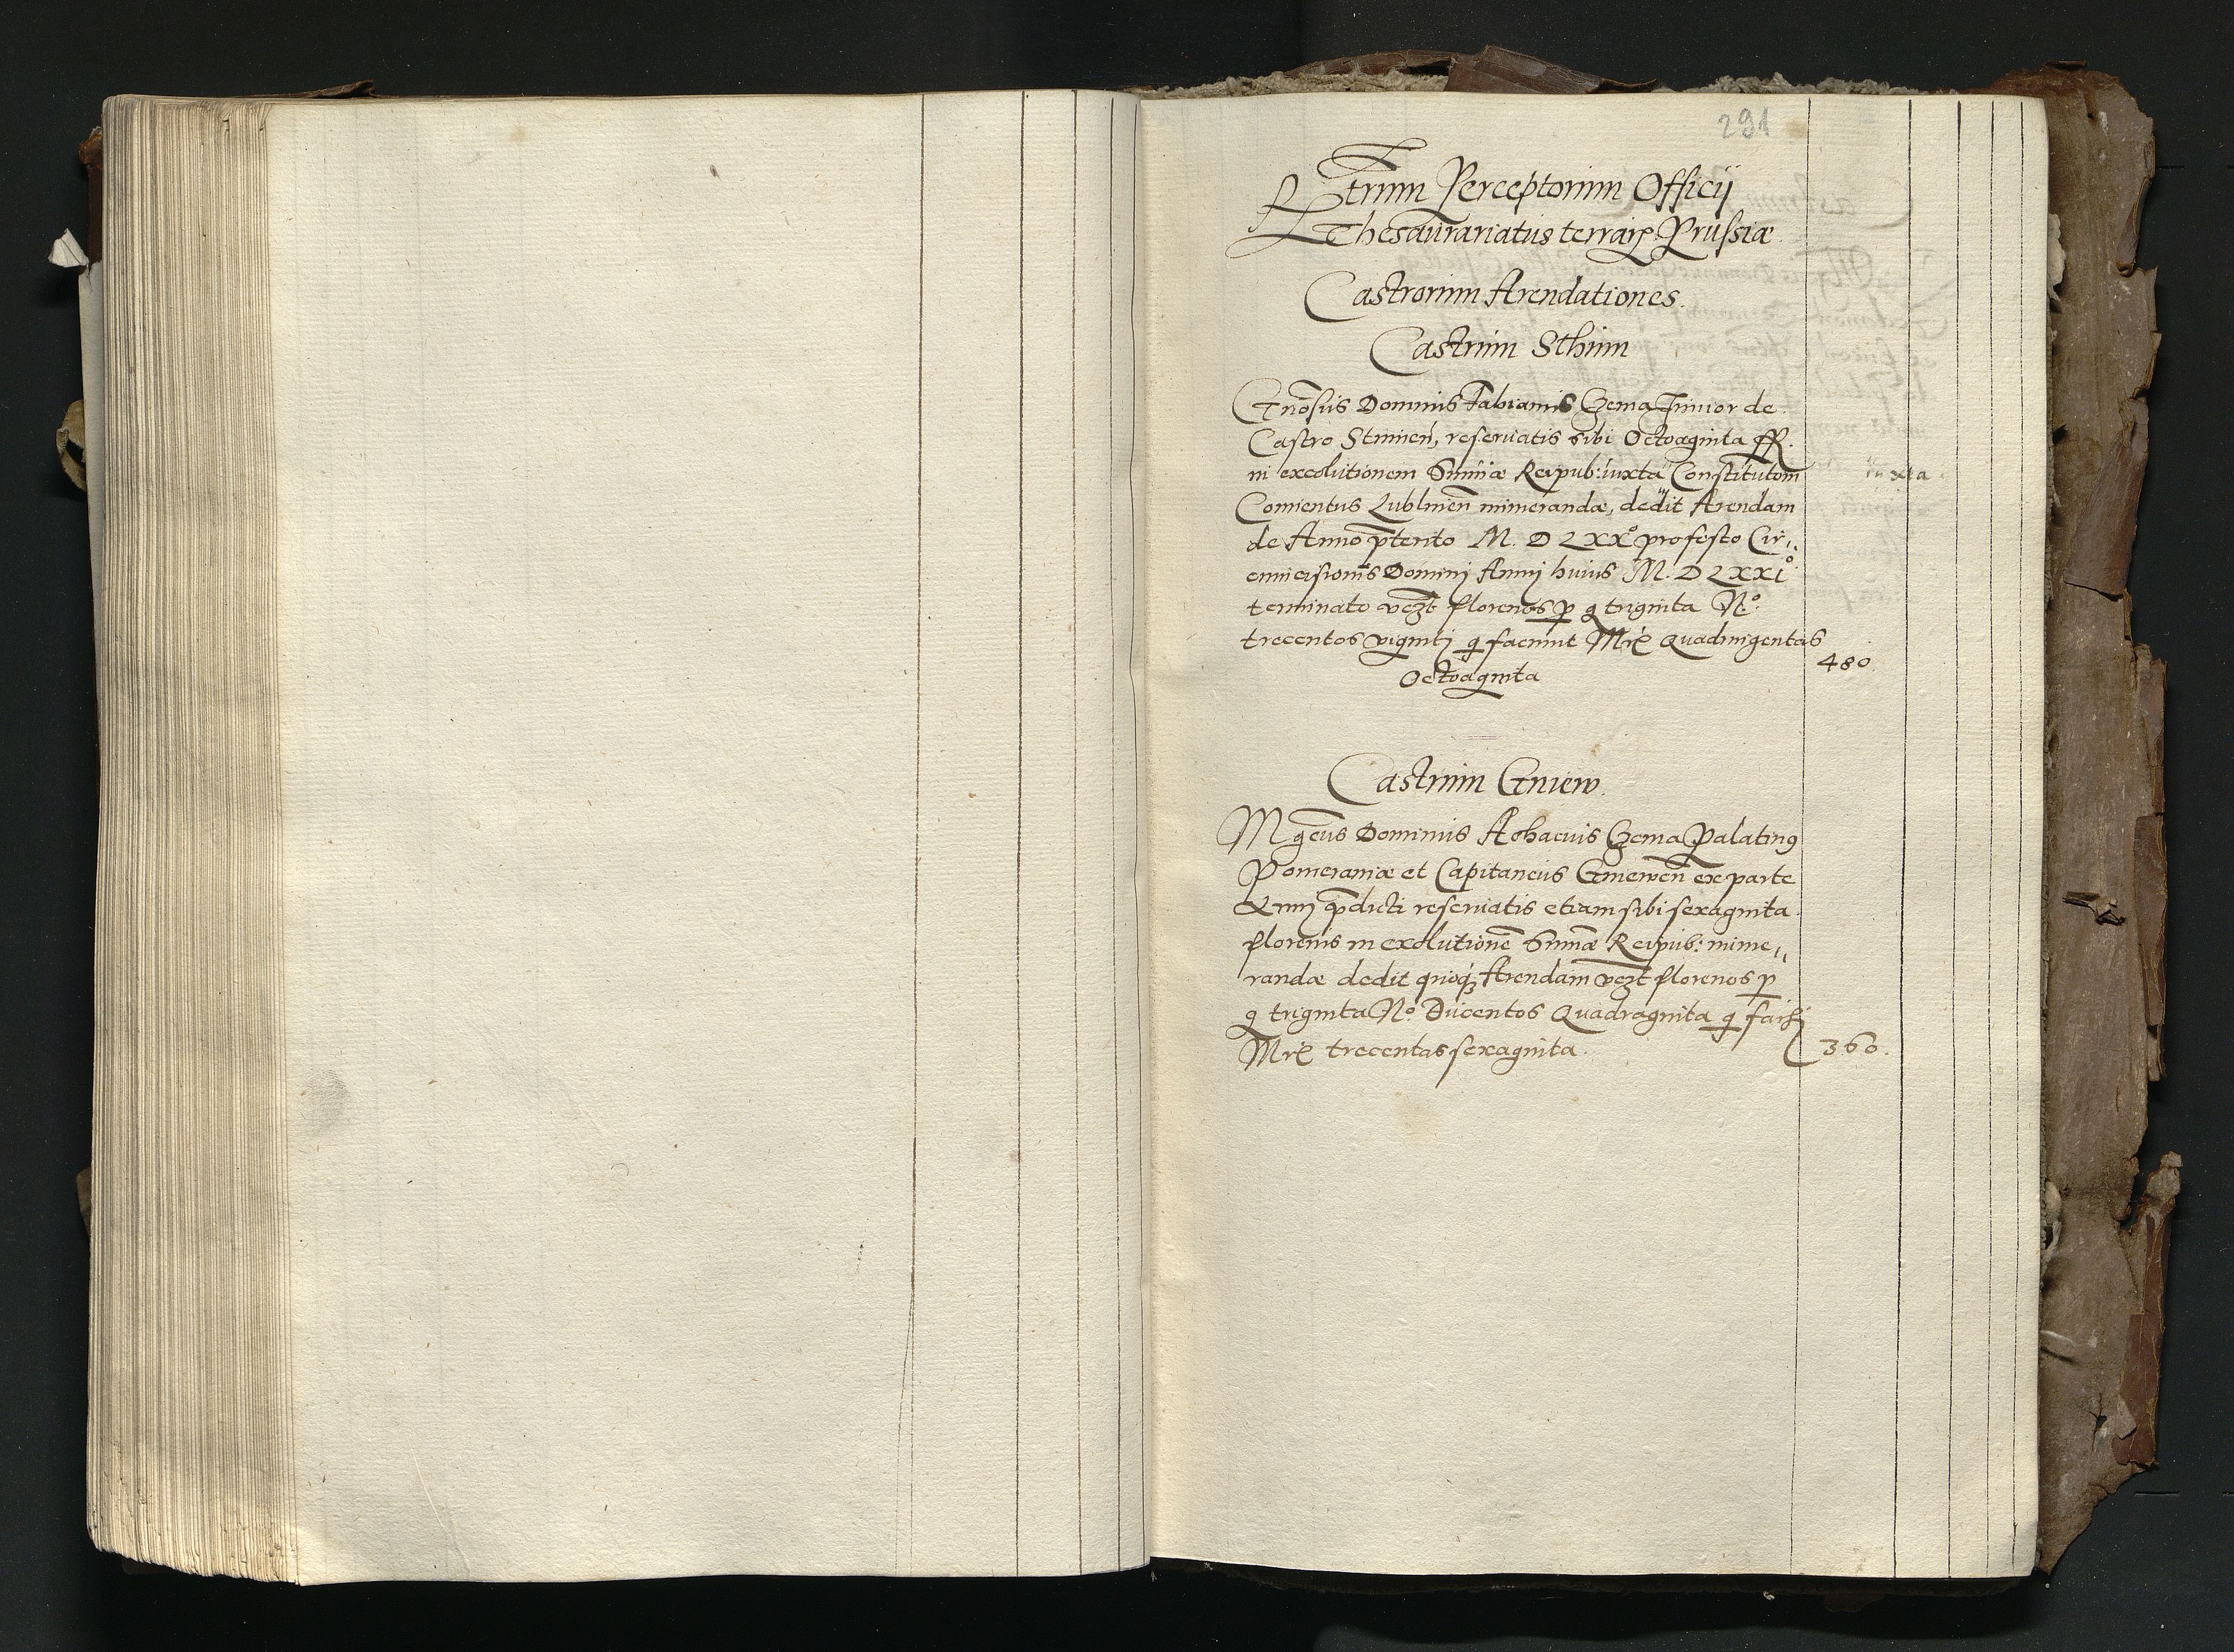 291
Rtrum Perceptorum Officij
Thesaurariatus terrarꝝ Prussiæ
Castrorum Arendationes.
Castrum Sthum
Gnōsus Dominus Fabianus Czema Junior de
Castro Stumen̄, reseruatis sibi Octoaginta fR.
in exolutionem Sum̄æ Reipub: iuxta Constitutōm
iuxta
Conuentus Lublinen̄ numerandæ, dedit Arendam
de Anno p̄terito M. D LXX° profesto Cir„
cumcisionis Dominj Annj huius M. D LXXI°
terminato vczt florenos p g triginta N°.
trecentos vigintj q faciunt Mrꝭ Quadringentas
Octoaginta
480
Castrum Gniew.
Mgcūs Dominus Achacius Czema Palatinꝰ
Pomeraniæ et Capitaneus Gniewen̄ ex parte
Annj p̄dicti reseruatis etiam sibi sexaginta
florenis in exolutionē Sum̄æ Reipub: nume„
randæ dedit quoqꝫ Arendam vczt florenos p
g triginta N° Ducentos Quadraginta q
Mrꝭ trecentas sexaginta.
360.